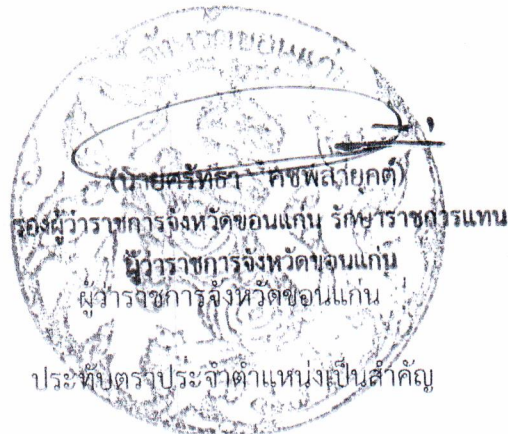 จังหวัดขอนแก่น
(นายศรัทธา คชพลายุกต์)
รองผู้ว่าราชการจังหวัดขอนแก่น รักษาราชการแทน
ผู้ว่าราชการจังหวัดขอนแก่น
ผู้ว่าราชการจังหวัดขอนแก่น
ประทับตราประจำตำแหน่งเป็นสำคัญ